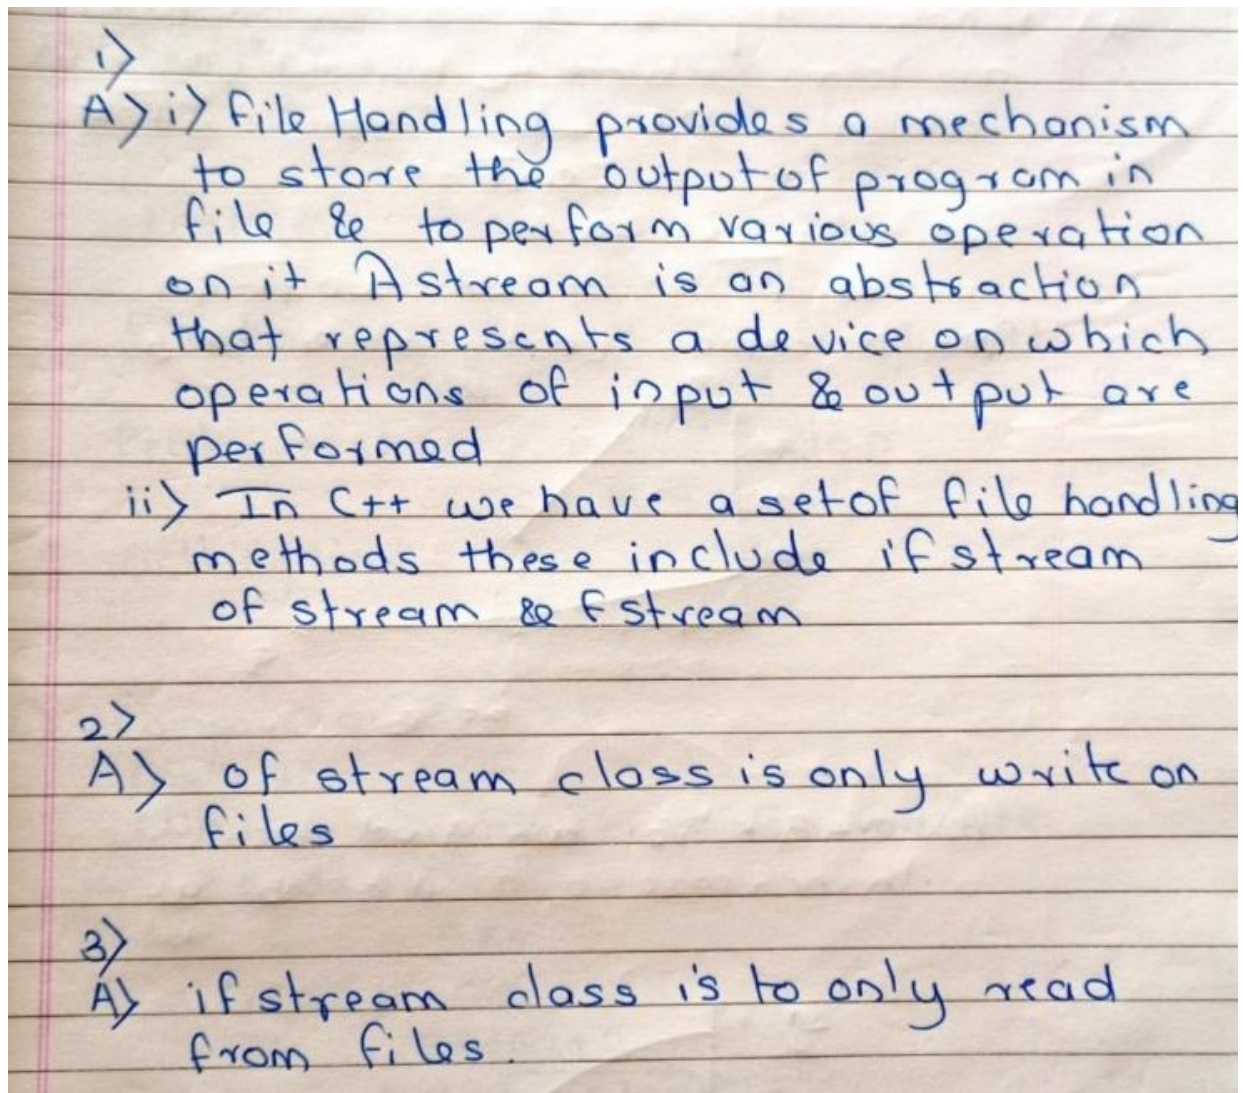 1)
A) i) File Handling provides a mechanism
to store the output of program in
file & to perform various operation
on it A stream is an abstraction
that represents a device on which
operations of input & output are
performed
ii) In C++ we have a set of file handling
methods these include if stream
of stream & fstream
2)
A) of stream class is only write on
files
3)
A) if stream class is to only read
from files.